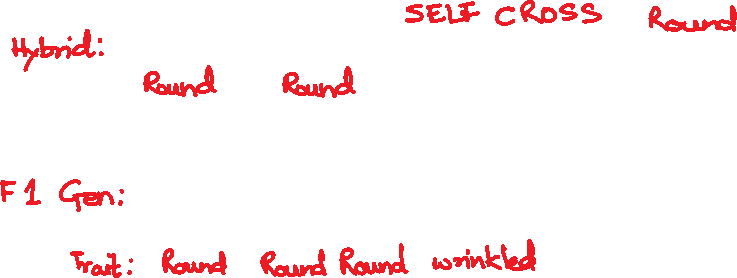 SELF CROSS Round
Hybrid:
Round Round
F1 Gen:
Trait: Round Round Round wrinkled